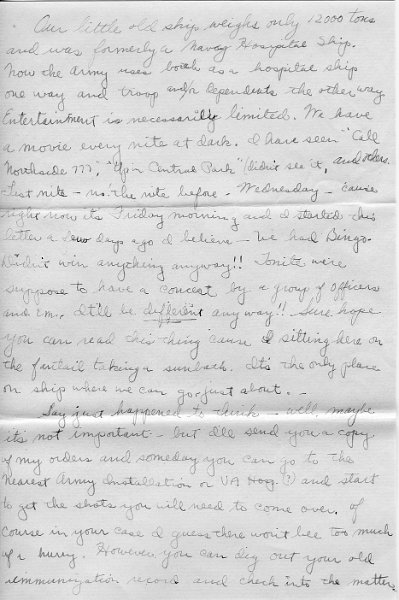 Our little old ship weighs only 12000 tons
and was formerly a Navy Hospital Ship.
Now the Army uses both as a hospital ship
one way and troop and/or Dependents the other way
Entertainment is necessarily limited. We have
a movie every nite at dark. I have seen "Call
Northside 777", "Up in Central Park" (didn't see it, and others.
Last nite - no: the nite before - Wednesday - cause
right now its Friday morning and I started this
letter a few days ago I believe - We had Bingo.
Didn't win anything anyway!! Tonite we're
suppose to have a concert by a group of officers
and EM. It'll be different anyway!! Sure hope
you can read this thing cause I sitting here on
the fantail taking a sunbath. It's the only place
on ship where we can go, just about. -
Say just happened to think - well, maybe
it's not important - but I'll send you a copy
of my orders and someday you can go to the
nearest Army Installation or VA Hosp. (?) and start
to get the shots you will need to come over. Of
course in your case I guess there won't bee too much
of a hurry. However you can dig out your old
immunization record and check into the matter.